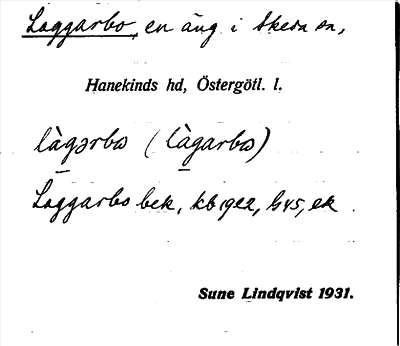 Laggarbo, en äng i Skeda sn,
Hanekinds hd, Östergötl. l.
làgərbω (làgarbω)
Laggarbo bek,
Sune Lindqvist 1931.